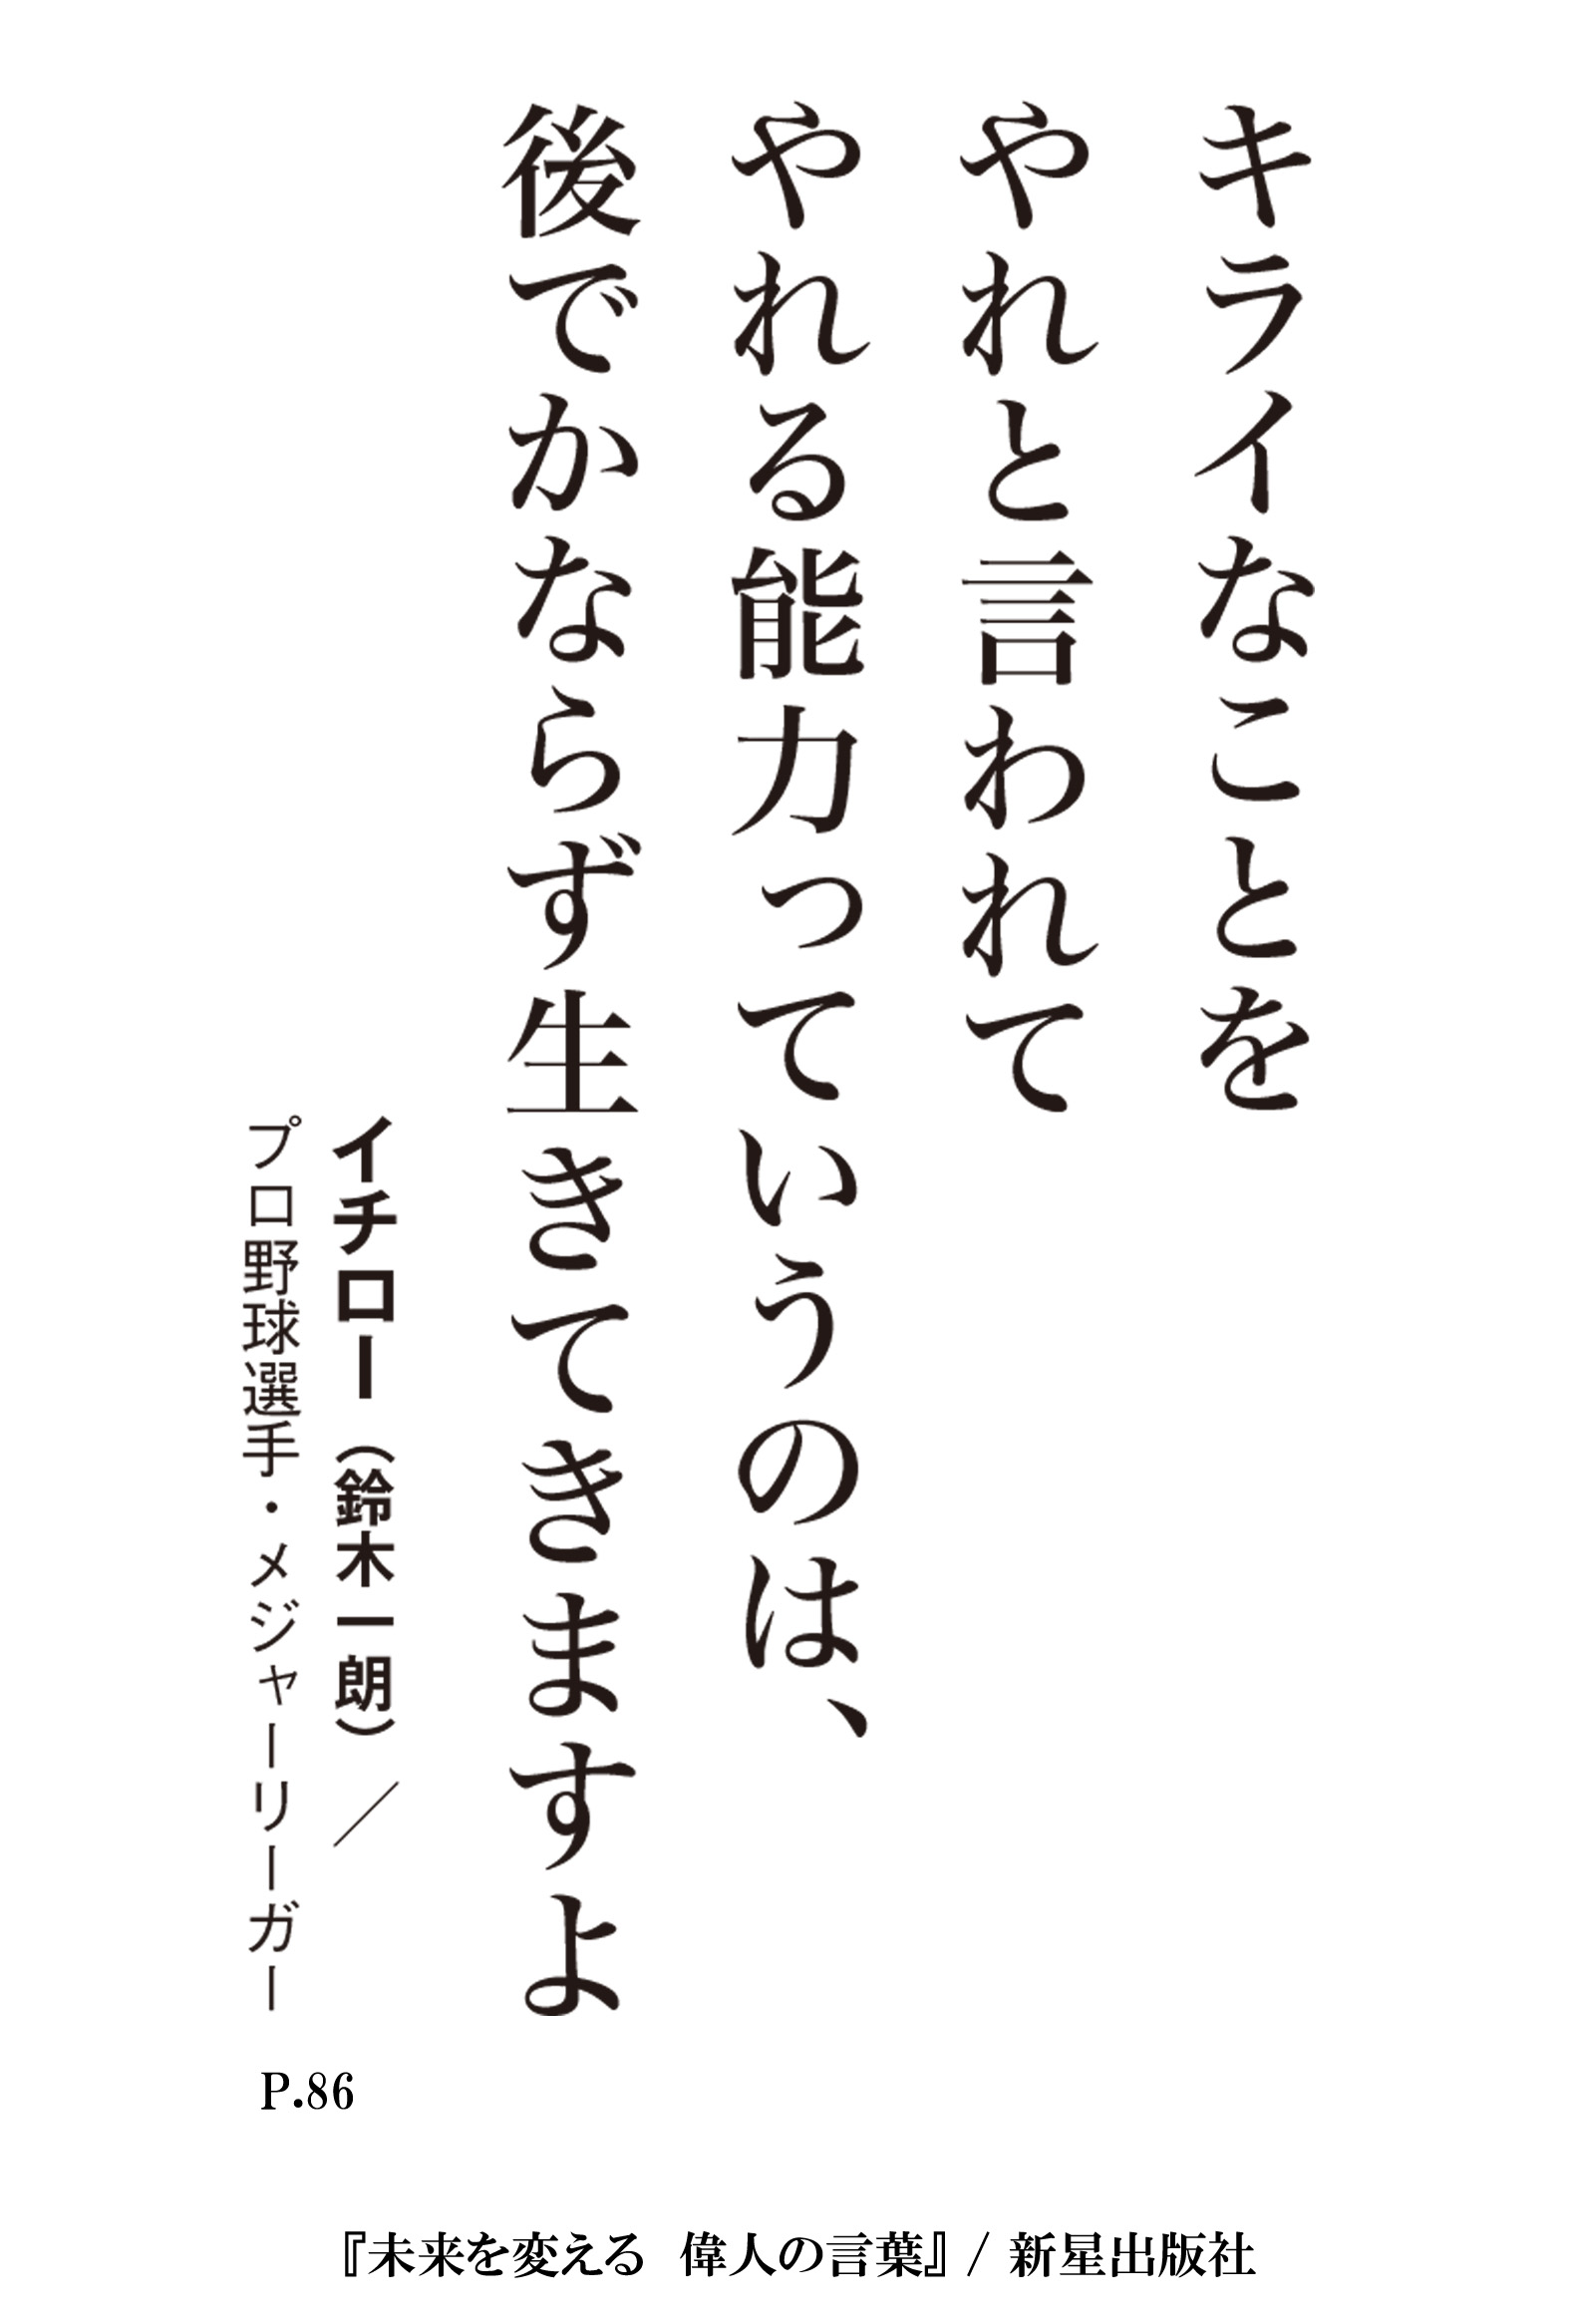 キライなことを
やれと言われて
やれる能力っていうのは、
後でかならず生きてきますよ
イチロー（鈴木一朗）／
プロ野球選手・メジャーリーガー
P.86
『未来を変える 偉人の言葉』/ 新星出版社